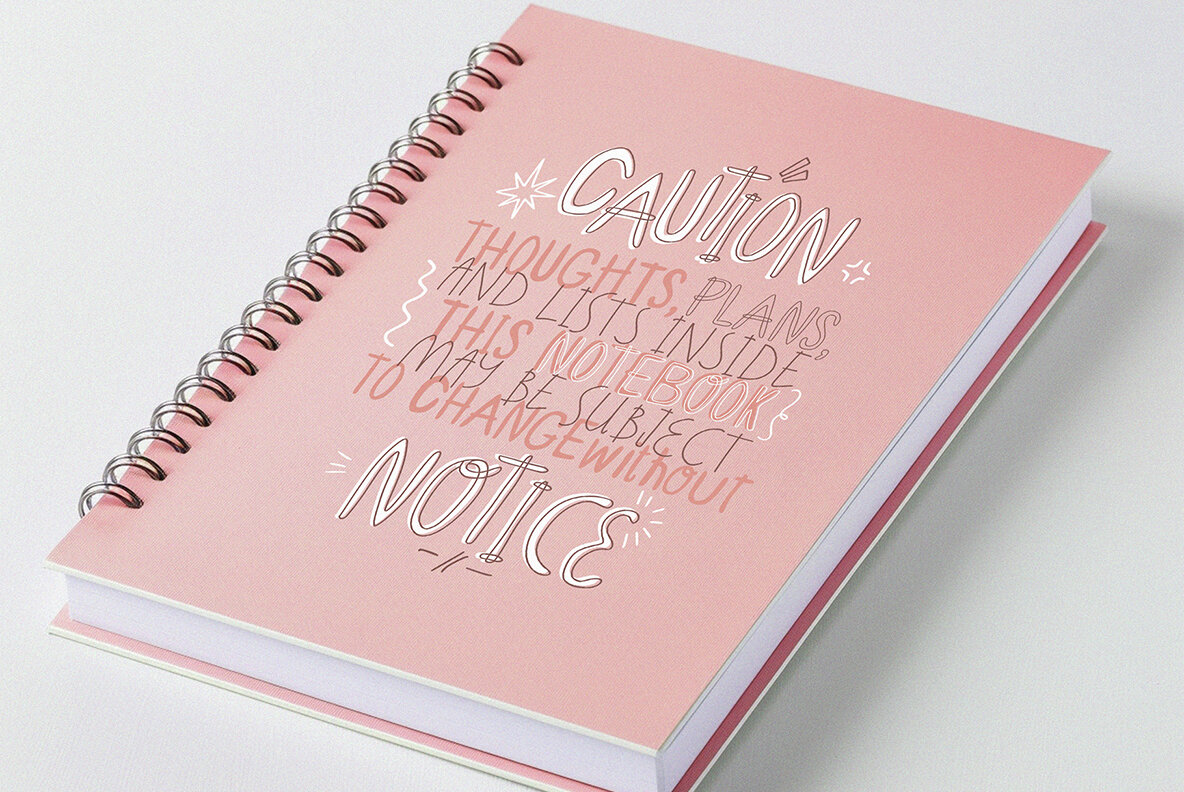 CAUTION
THOUGHTS, PLANS,
AND LISTS INSIDE,
THIS NOTEBOOK
MAY BE SUBJECT
TO CHANGE without
NOTICE